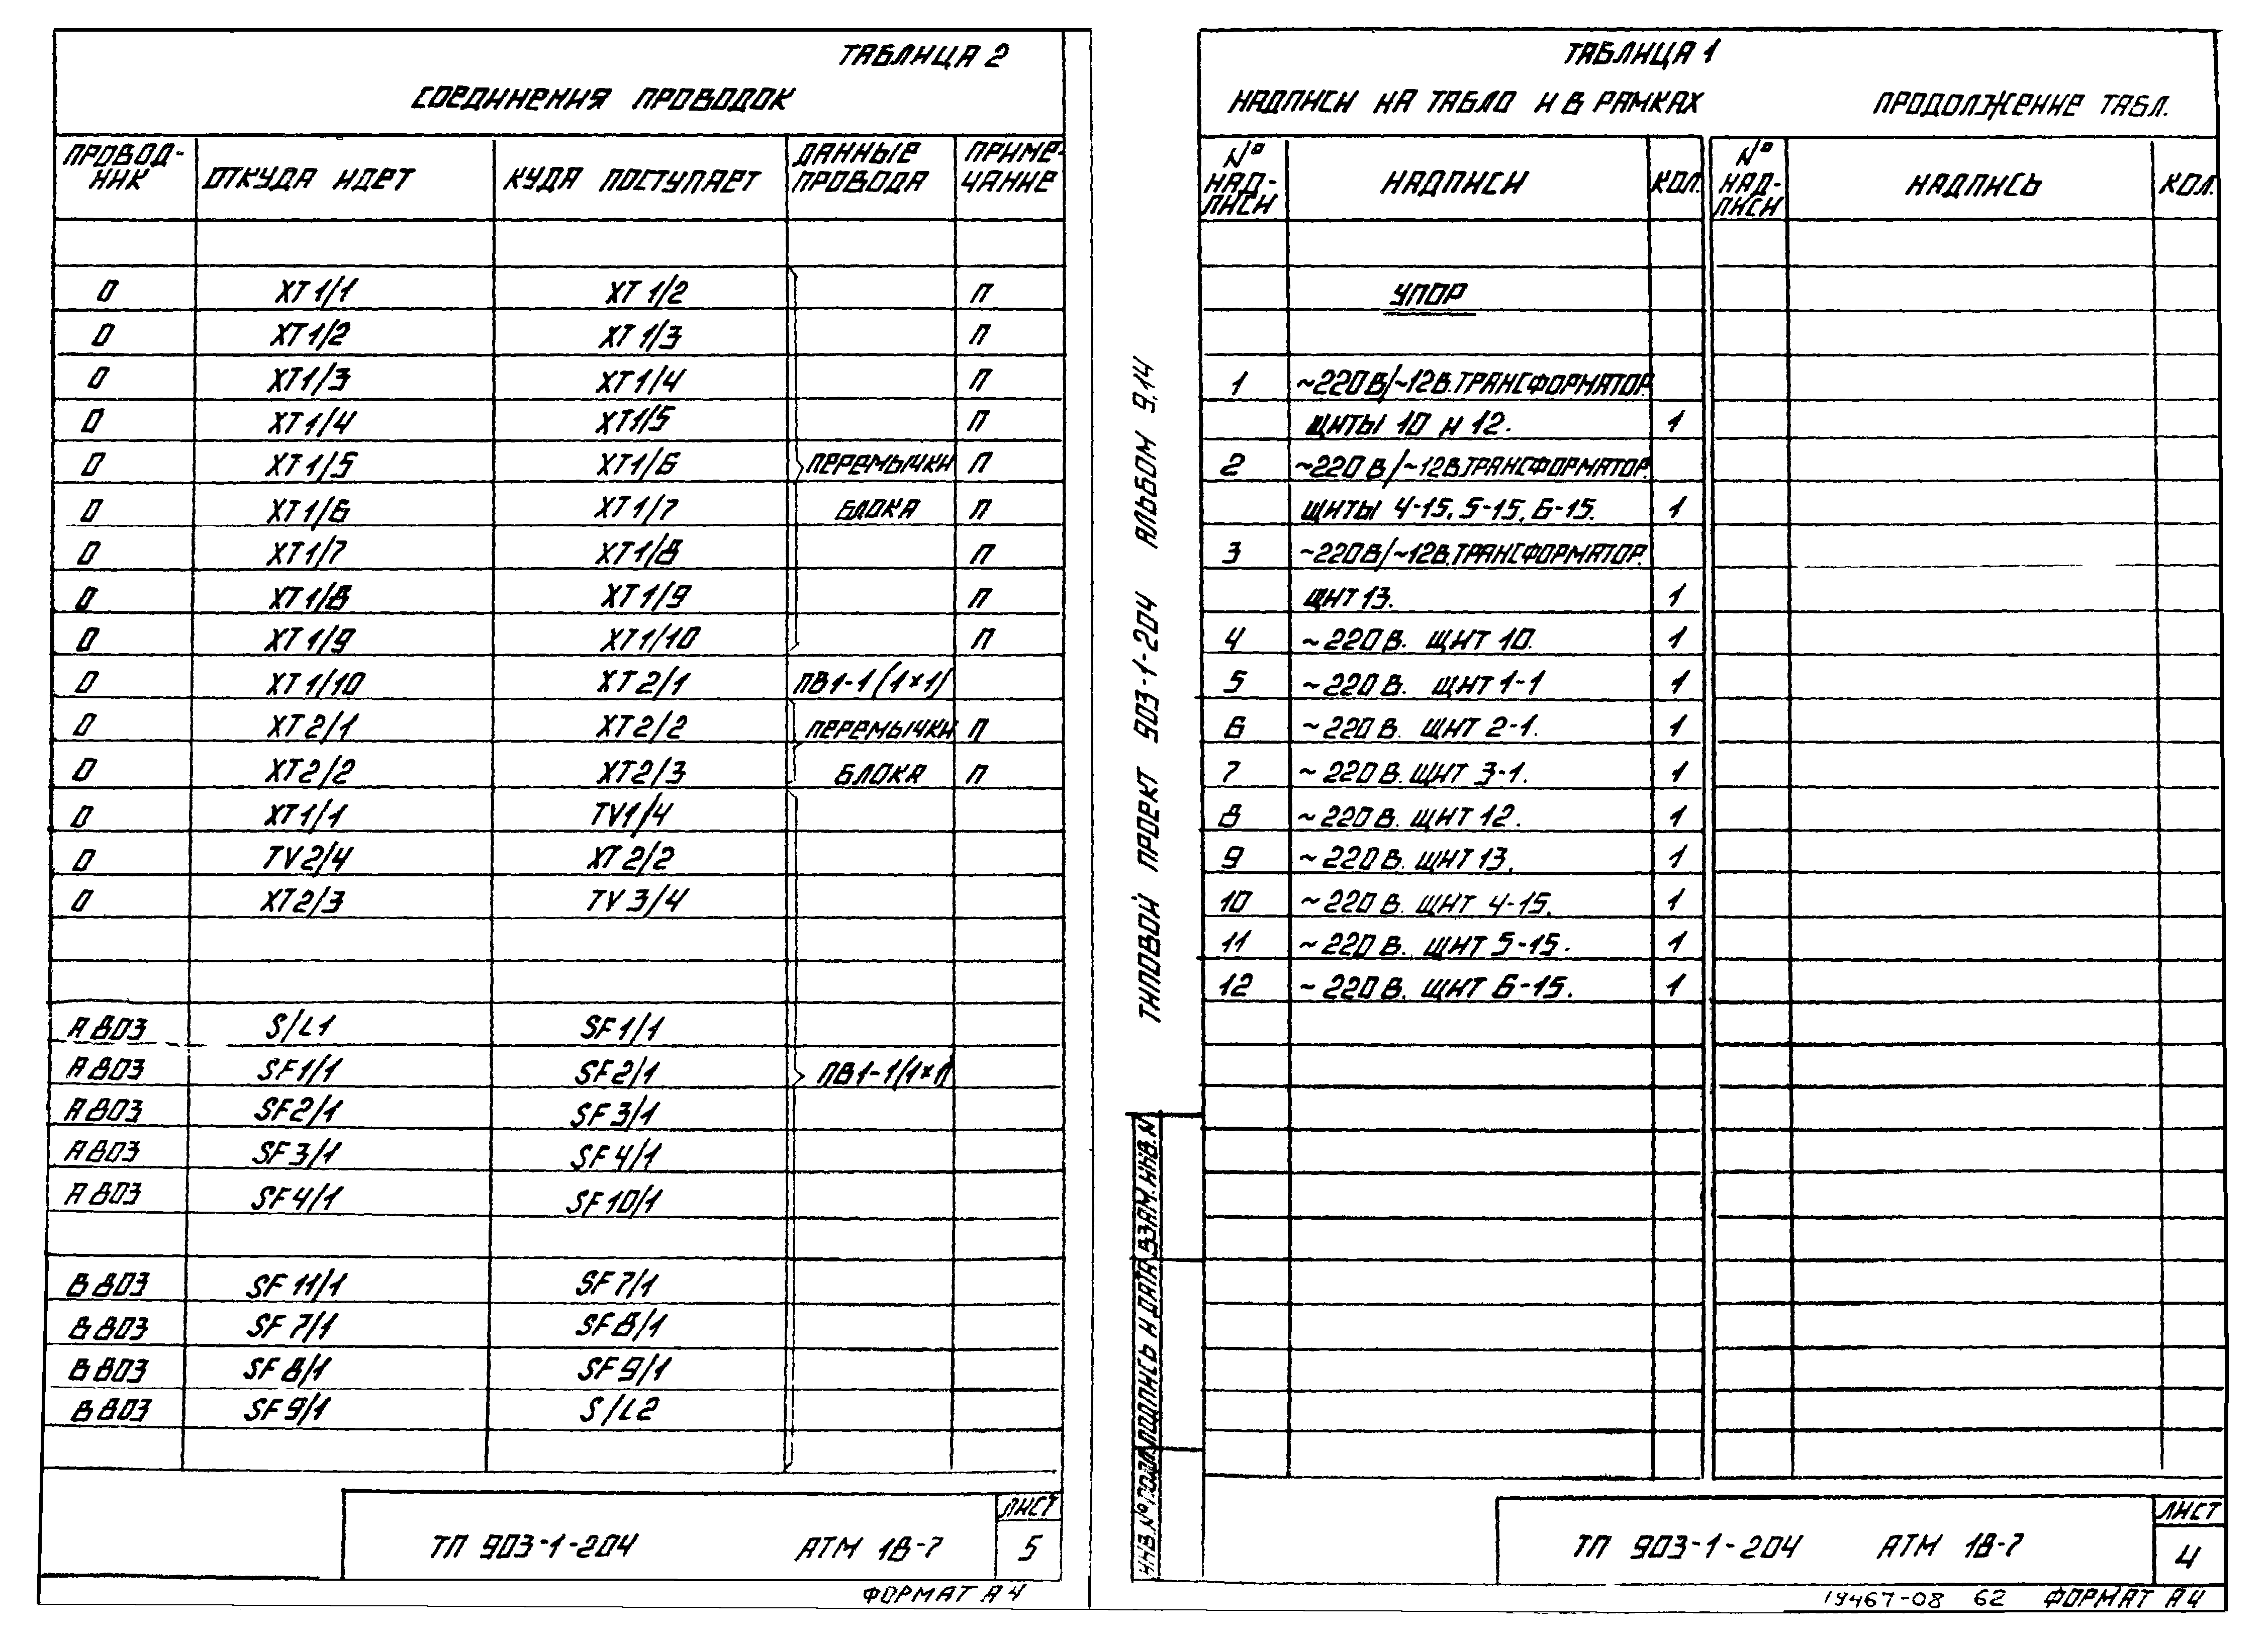 ТАБЛИЦА 2
СОЕДИНЕНИЯ ПРОВОДОК
ПРОВОД-НИК ОТКУДА ИДЕТ КУДА ПОСТУПАЕТ ДАННЫЕ ПРОВОДА ПРИМЕ-ЧАНИЕ
0 XT1/1 XT1/2 П
0 XT1/2 XT1/3 П
0 XT1/3 XT1/4 П
0 XT1/4 XT1/5 П
0 XT1/5 XT1/6 ПЕРЕМЫЧКИ П
0 XT1/6 XT1/7 БЛОКА П
0 XT1/7 XT1/8 П
0 XT1/8 XT1/9 П
0 XT1/9 XT1/10 П
0 XT1/10 XT2/1 ПВ1-1(1×1)
0 XT2/1 XT2/2 ПЕРЕМЫЧКИ П
0 XT2/2 XT2/3 БЛОКА П
0 XT1/1 TV1/4
0 TV2/4 XT2/2
0 XT2/3 TV3/4
A803 S/L1 SF1/1
A803 SF1/1 SF2/1 ПВ1-1(1×1)
A803 SF2/1 SF3/1
A803 SF3/1 SF4/1
A803 SF4/1 SF10/1
B803 SF11/1 SF7/1
B803 SF7/1 SF8/1
B803 SF8/1 SF9/1
B803 SF9/1 S/L2
ТП 903-1-204 АТМ 18-7 ЛИСТ 5
ФОРМАТ А4
ТИПОВОЙ ПРОЕКТ 903-1-204 АЛЬБОМ 9.14
ИНВ.№ПОДЛ ПОДПИСЬ И ДАТА ВЗАМ.ИНВ.N
ТАБЛИЦА 1
НАДПИСИ НА ТАБЛО И В РАМКАХ ПРОДОЛЖЕНИЕ ТАБЛ.
№ НАД-ПИСИ НАДПИСИ КОЛ. № НАД-ПИСИ НАДПИСЬ КОЛ.
УПОР
1 ~220В/~12В.ТРАНСФОРМАТОР.
ЩИТЫ 10 И 12. 1
2 ~220В/~12В.ТРАНСФОРМАТОР.
ЩИТЫ 4-15, 5-15, 6-15. 1
3 ~220В/~12В.ТРАНСФОРМАТОР.
ЩИТ 13. 1
4 ~220В. ЩИТ 10. 1
5 ~220В. ЩИТ 1-1 1
6 ~220В. ЩИТ 2-1. 1
7 ~220В. ЩИТ 3-1. 1
8 ~220В. ЩИТ 12. 1
9 ~220В. ЩИТ 13. 1
10 ~220В. ЩИТ 4-15. 1
11 ~220В. ЩИТ 5-15. 1
12 ~220В. ЩИТ 6-15. 1
ТП 903-1-204 АТМ 18-7 ЛИСТ 4
19467-08 62 ФОРМАТ А4